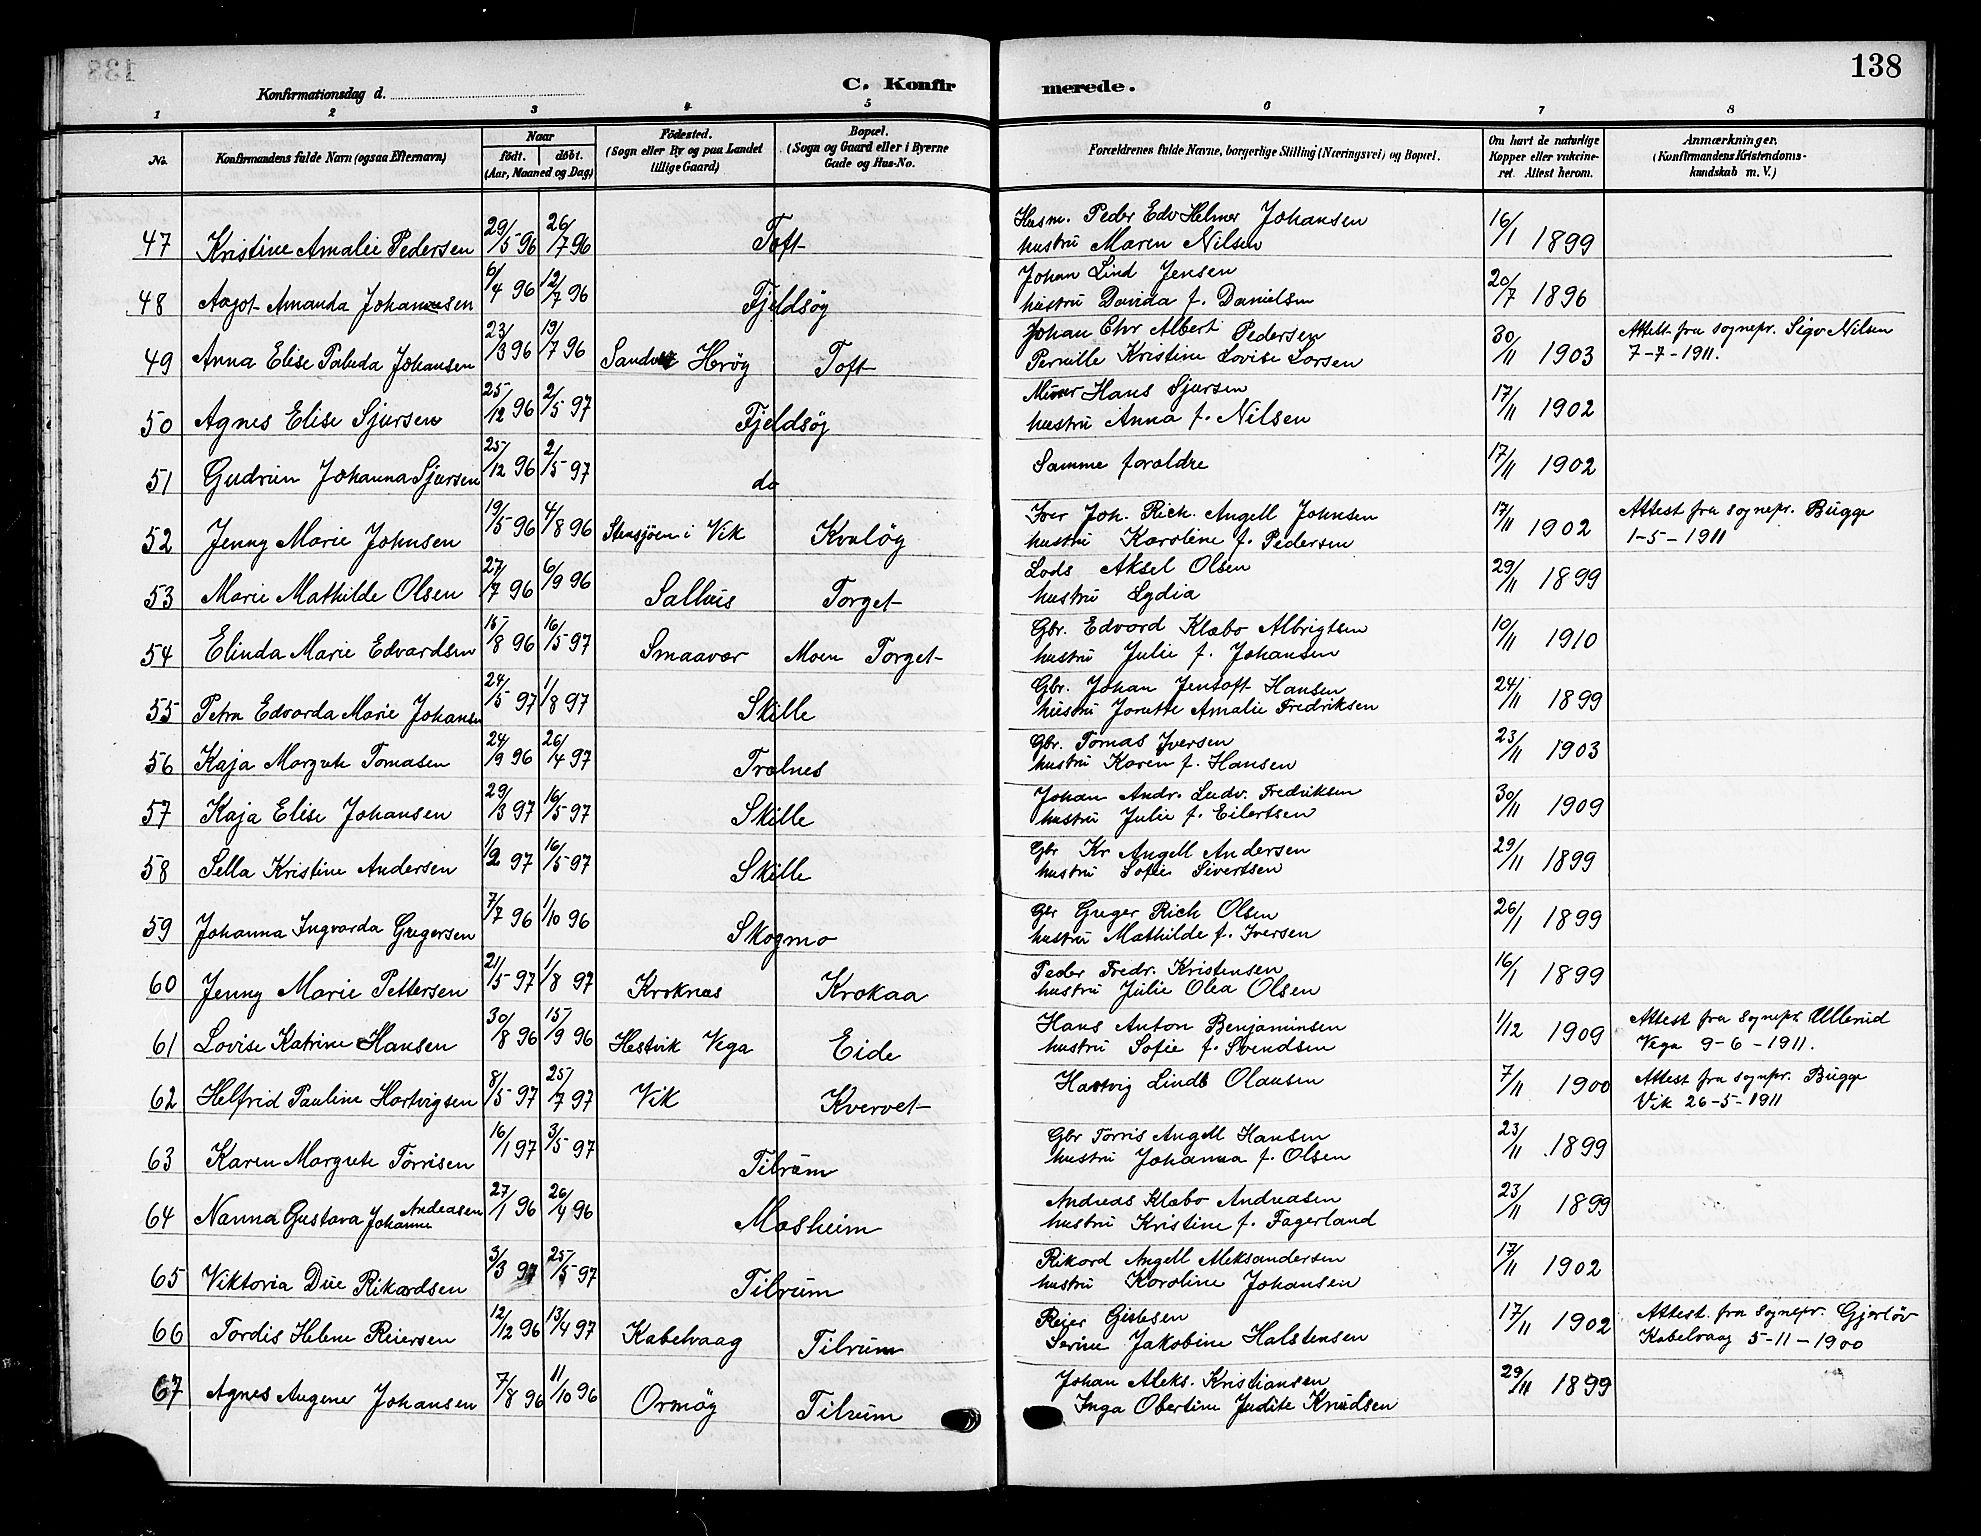 138
C. Konfirmerede.
Konfirmationsdag d.
1 2 3 4 5 6 7 8
No.
Konfirmandens fulde Navn (ogsaa Efternavn)
Naar
født. døbt.
(Aar, Maaned og Dag)
Födested.
(Sogn eller By og paa Landet
tillige Gaard)
Bopæl.
(Sogn og Gaard eller i Byerne
Gade og Hus-No.
Forældrenes fulde Navne, borgerlige Stilling (Næringsvei) og Bopæl.
Om havt de naturlige
Kopper eller vakcine-
ret. Attest herom.
Anmærkninger.
(Konfirmandens Kristendoms-
kundskab m. V.)
47 Kristine Amalie Pedersen 29/5 96 26/7 96 Toft Husm. Peder Edv Helmer Johansen 16/1 1899
hustru Maren Nilsen
48 Aagot Amanda Johannesen 6/4 96 12/7 96 Fjeldsøy Johan Lind Jensen 20/7 1896
hustru Davida f. Danielsen
49 Anna Elise Paleda Johansen 23/3 96 19/7 96 Herøy Toft Johan Chr Albert Pedersen 30/11 1903 Attest fra sognepr. Sigv Nilsen
Pernille Kristine Lovise Larsen 7-7-1911.
50 Agnes Elise Sjursen 25/12 96 2/5 97 Fjeldsøy Hans Sjursen 17/11 1902
hustru Anna f. Nilsen
51 Gudrun Johanna Sjursen 25/12 96 2/5 97 do Samme foraldre 17/11 1902
52 Jenny Marie Johnsen 19/5 96 4/8 96 Stensjöen i Vik Kvaløy Iver Joh. Rich. Angell Johnsen 17/11 1902 Attest fra sognepr. Bugge
hustru Karoline f. Pedersen 1-5-1911
53 Marie Mathilde Olsen 27/7 96 6/9 96 Salhus Torget Lods Aksel Olsen 29/11 1899
hustru Lydia
54 Elinda Marie Edvardsen 15/8 96 16/5 97 Smaavær Moen Torget Gbr. Edvard Klæbo Albrigtsen 10/11 1910
hustru Julie f. Johansen
55 Petra Edvarda Marie Johansen 24/5 97 1/8 97 Skille Gbr. Johan Jentoft Hansen 24/11 1899
hustru Jorette Amalie Fredriksen
56 Kaja Margrete Tomasen 24/9 96 26/4 97 Trælnes Gbr. Tomas Iversen 23/11 1903
hustru Karen f. Hansen
57 Kaja Elise Johansen 29/3 97 16/5 97 Skille Johan Andr. Ludv. Fredriksen 30/11 1909
hustru Julie f. Eilertsen
58 Sella Kristine Andersen 1/2 97 16/5 97 Skille Gbr Kr Angell Andersen 29/11 1899
hustru Sofie Sivertsen
59 Johanna Ingvarda Gregersen 7/7 96 1/10 96 Skogmo Gbr Greger Rich Olsen 26/1 1899
hustru Mathilde f. Iversen
60 Jenny Marie Pettersen 21/5 97 1/8 97 Kroknes Krokaa Peder Fredr. Kristensen 16/1 1899
hustru Julie Olea Olsen
61 Lovise Katrine Hansen 30/8 96 15/9 96 Hestvik Vega Eide Hans Anton Benjaminsen 1/12 1909 Attest fra sognepr. Ullerud
hustru Sofie f. Svendsen Vega 9-6-1911.
62 Helfrid Pauline Hartvigsen 8/5 97 25/7 97 Vik Kvervet Hartvig Lind Olausen 7/11 1900 Attest fra sognepr. Bugge
Vik 26-5-1911
63 Karen Margrete Torrisen 16/1 97 3/5 97 Tilrum Gbr Torris Angell Hansen 23/11 1899
hustru Johanna f. Olsen
64 Nanna Gustava Johanne Andreasen 27/1 96 26/4 96 Mosheim Andreas Klæbo Andreasen 23/11 1899
hustru Kristine f. Fagerland
65 Viktoria Due Rikardsen 3/3 97 25/5 97 Tilrum Rikard Angell Aleksandersen 17/11 1902
hustru Karoline Johansen
66 Tordis Helene Reiersen 12/12 96 13/4 97 Kabelvaag Tilrum Reier Gislesen 17/11 1902 Attest fra sognepr. Gjærløv
Serine Jakobine Halstensen Kabelvaag 5-11-1900
67 Agnes Augene Johansen 7/8 96 11/10 96 Ormøy Tilrum Johan Aleks. Kristiansen 29/11 1899
Inga Obertine Judite Knudsen